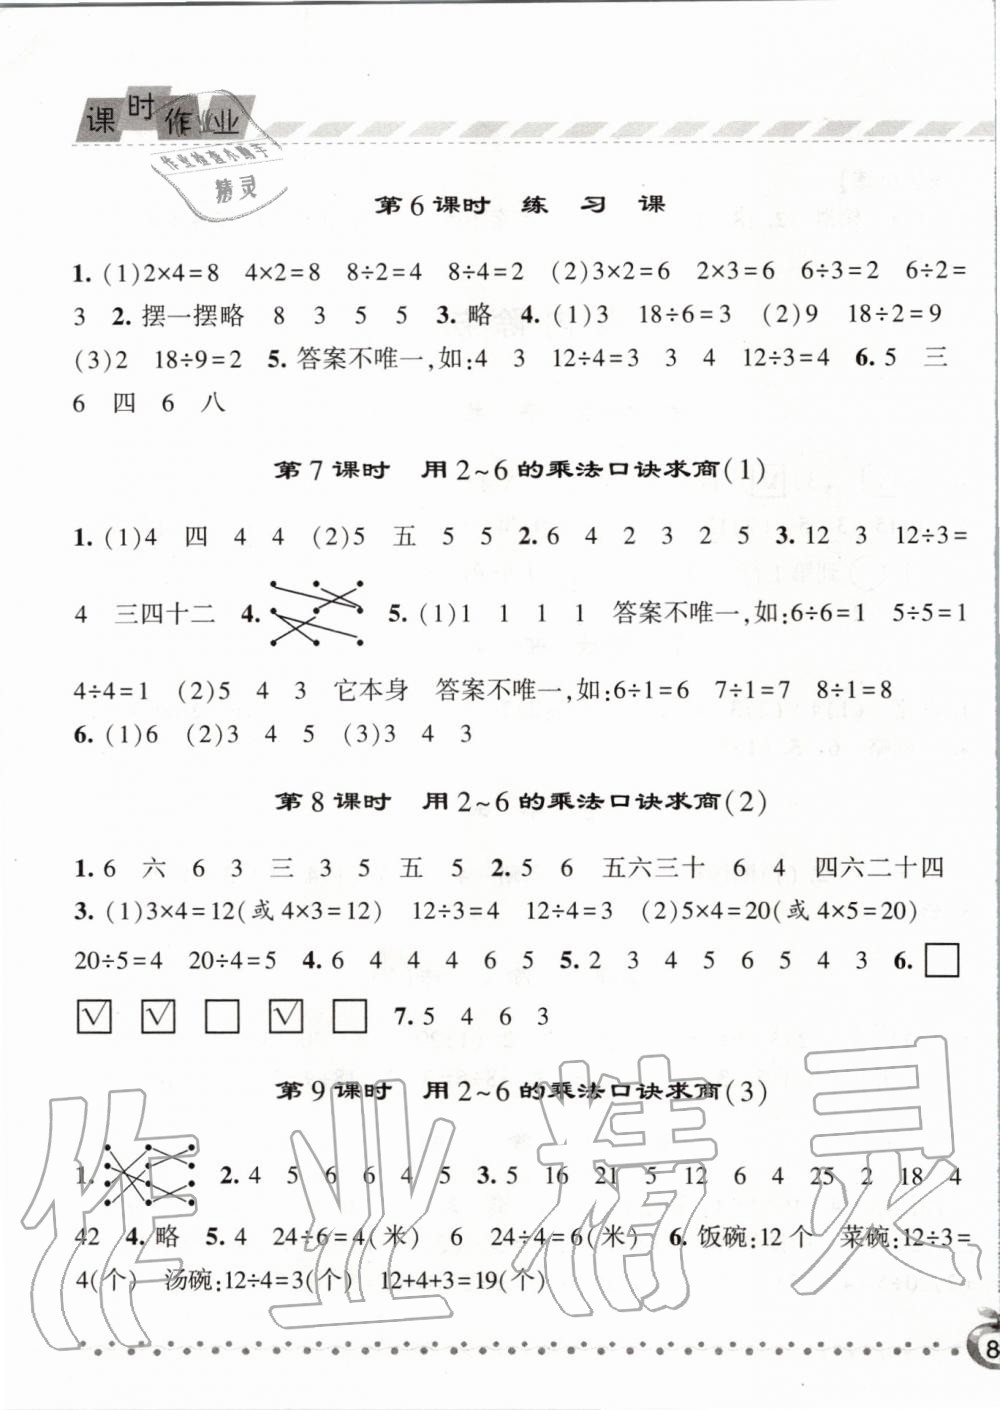 课时作业
作业检查小助手
精灵
第6课时 练 习 课
1. (1)2×4=8 4×2=8 8÷2=4 8÷4=2 (2)3×2=6 2×3=6 6÷3=2 6÷2=
3 2. 摆一摆略 8 3 5 5 3. 略 4. (1)3 18÷6=3 (2)9 18÷2=9
(3)2 18÷9=2 5. 答案不唯一,如:4 3 12÷4=3 3 4 12÷3=4 6. 5 三
6 四 6 八
第7课时 用2~6的乘法口诀求商(1)
1. (1)4 四 4 4 (2)5 五 5 5 2. 6 4 2 3 2 5 3. 12 3 12÷3=
4 三四十二 4. 5. (1)1 1 1 1 答案不唯一,如:6÷6=1 5÷5=1
4÷4=1 (2)5 4 3 它本身 答案不唯一,如:6÷1=6 7÷1=7 8÷1=8
6. (1)6 (2)3 4 5 (3)3 4 3
第8课时 用2~6的乘法口诀求商(2)
1. 6 六 6 3 三 3 5 五 5 2. 5 6 五六三十 6 4 四六二十四
3. (1)3×4=12(或4×3=12) 12÷3=4 12÷4=3 (2)5×4=20(或4×5=20)
20÷5=4 20÷4=5 4. 6 4 4 4 6 5 5. 2 3 4 5 6 5 4 3 6. □
√ √ □ √ □ 7. 5 4 6 3
第9课时 用2~6的乘法口诀求商(3)
1. 2. 4 5 6 6 4 5 3. 5 16 21 5 12 6 4 25 2 18 4
42 4. 略 5. 4 24÷6=4(米) 6 24÷4=6(米) 6. 饭碗:12个 菜碗:12÷3=
4(个) 汤碗:12÷4=3(个) 12+4+3=19(个)
作业精灵
8